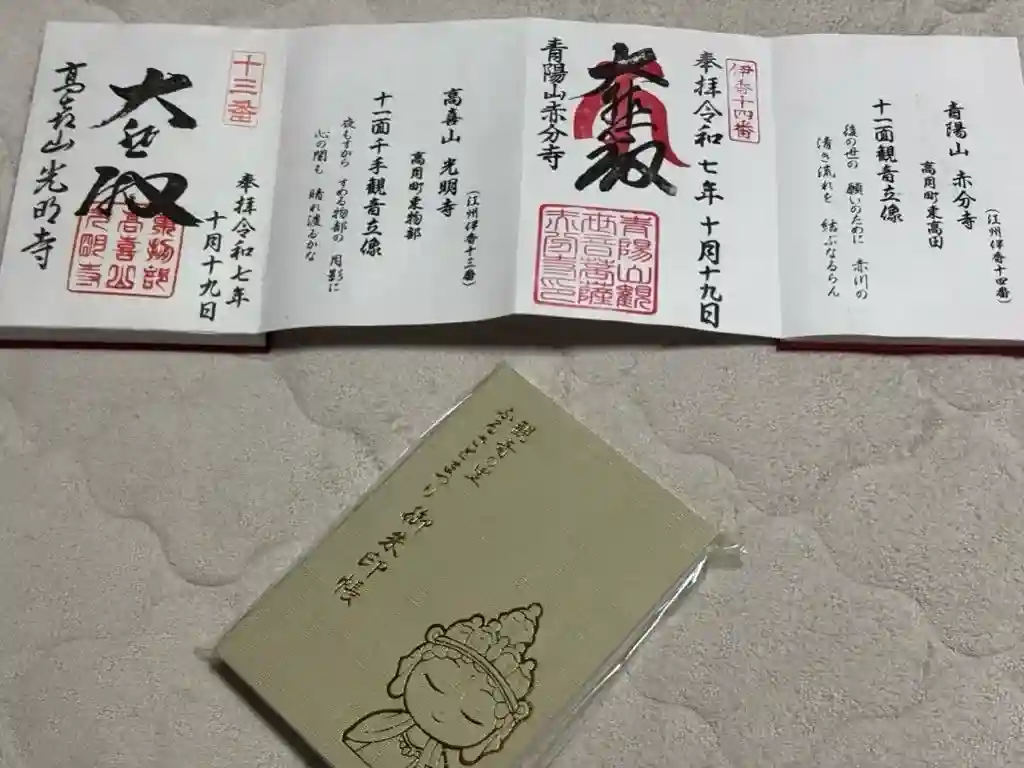 (江州伊香十四番)
青陽山 赤分寺
高月町東高田
十一面観音立像
後の世の 願いのために 赤川の
清き流れを 結ぶなるらん
伊香十四番
奉拝令和七年十月十九日
大悲殿
青陽山観
世音菩薩
青陽山赤分寺
(江州伊香十三番)
高喜山 光明寺
高月町東物部
十一面千手観音立像
夜もすから すめる物部の 月影に
心の闇も 晴れ渡るかな
十三番
奉拝令和七年
十月十九日
大悲殿
東物部
高喜山
光明寺
高喜山光明寺
観音の里
ふるさとまつり 御朱印帳